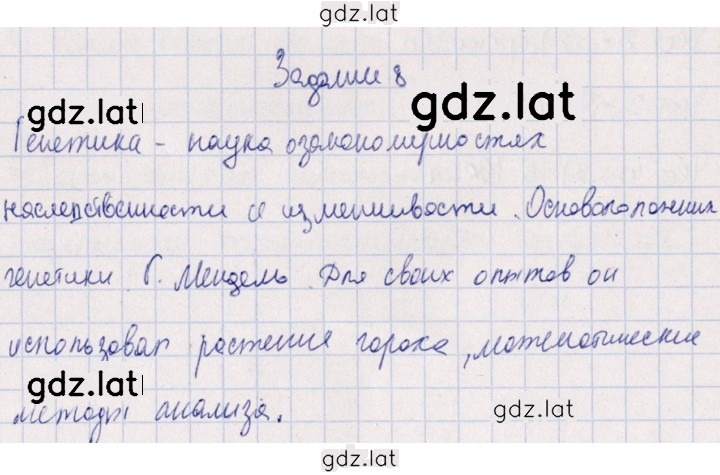 gdz.lat
Задание 8
gdz.lat
gdz.lat
Генетика - наука о закономерностях
наследственности и изменчивости. Основоположник
генетики Г. Мендель. Для своих опытов он
использовал растение гороха, математические
gdz.lat
методы анализа.
gdz.lat
gdz.lat